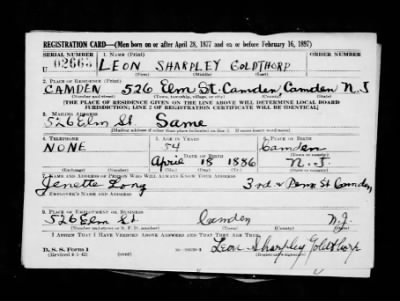 REGISTRATION CARD—(Men born on or after April 28, 1877 and on or before February 16, 1897)
SERIAL NUMBER 1. NAME (Print) ORDER NUMBER
U 02665 LEON SHARPLEY GOLDTHORP
(First) (Middle) (Last)
2. PLACE OF RESIDENCE (Print)
CAMDEN 526 Elm St. Camden Camden N.J
(Number and street) (Town, township, village, or city) (County) (State)
[THE PLACE OF RESIDENCE GIVEN ON THE LINE ABOVE WILL DETERMINE LOCAL BOARD
JURISDICTION; LINE 2 OF REGISTRATION CERTIFICATE WILL BE IDENTICAL]
3. MAILING ADDRESS
526 Elm St. Same
[Mailing address if other than place indicated on line 2. If same insert word same]
4. TELEPHONE 5. AGE IN YEARS 6. PLACE OF BIRTH
NONE 54 Camden
DATE OF BIRTH (Town or county)
April 18 1886 N.J.
(Exchange) (Number) (Mo.) (Day) (Yr.) (State or country)
7. NAME AND ADDRESS OF PERSON WHO WILL ALWAYS KNOW YOUR ADDRESS
Jenette Long 3rd & Penn St Camden
8. EMPLOYER'S NAME AND ADDRESS
9. PLACE OF EMPLOYMENT OR BUSINESS
526 Elm St Camden N.J.
(Number and street or R. F. D. number) (Town) (County) (State)
I AFFIRM THAT I HAVE VERIFIED ABOVE ANSWERS AND THAT THEY ARE TRUE.
D. S. S. Form 1 Leon Sharpley Goldthorp
(Revised 4-1-42) (Registrant's signature)